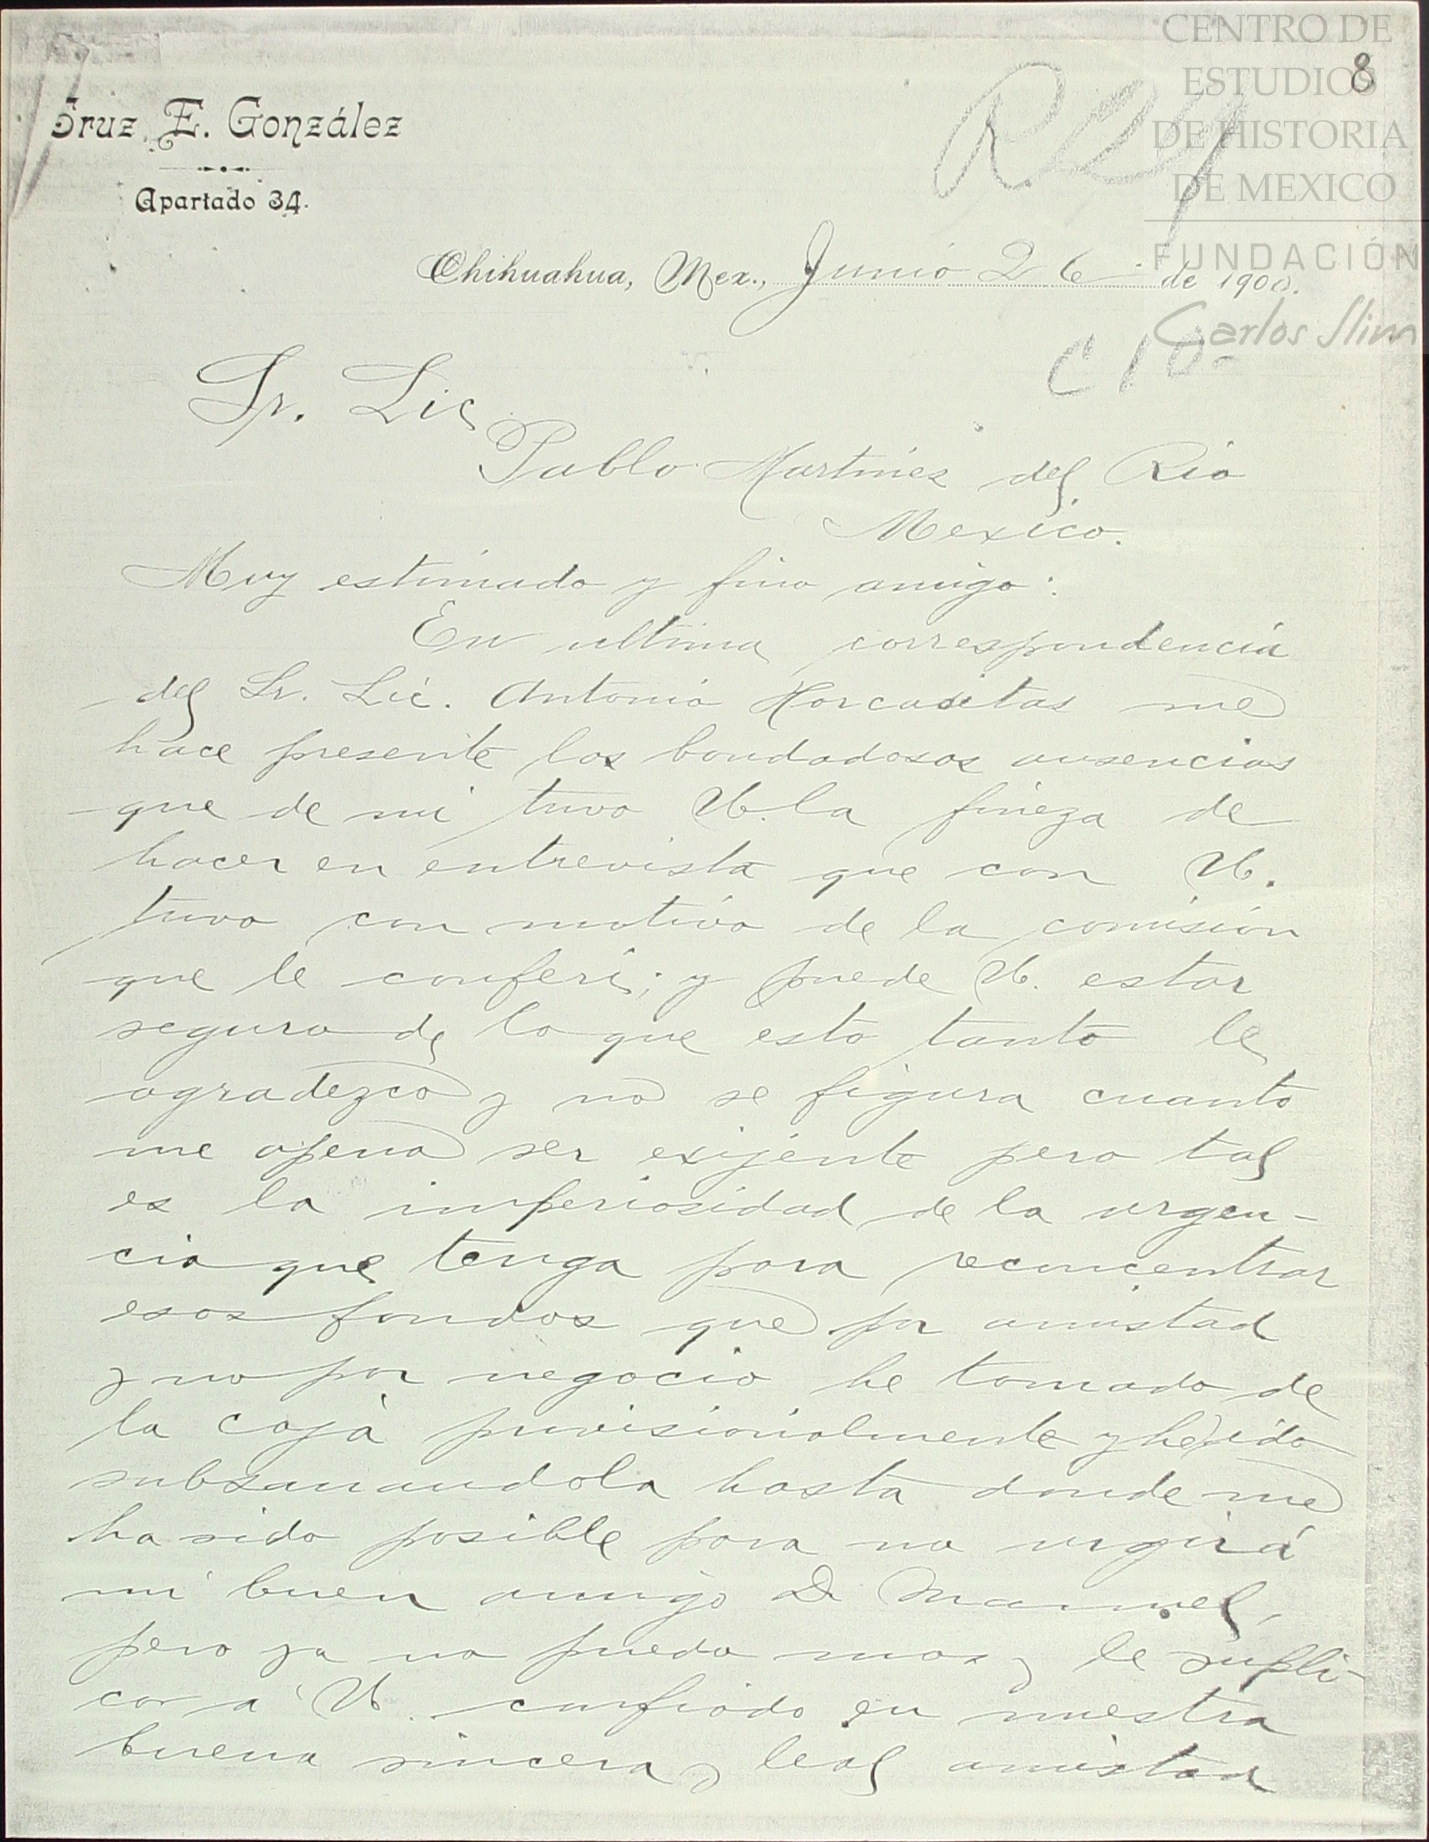 CENTRO DE
ESTUDIOS
DE HISTORIA
DE MEXICO
FUNDACIÓN
Carlos Slim
8
R24
Cruz E. González
Apartado 34.
Chihuahua, Mex., Junio 26 de 1900.
C 10-
Sr. Lic
Pablo Martinez del Rio
Mexico.
Muy estimado y fino amigo:
En ultima correspondencia
del Sr. Lic. Antonio Horcasitas me
hace presente las bondadosas ausencias
que de mi tuvo U. la fineza de
hacer en entrevista que con U.
tuvo con motivo de la comisión
que le conferí; y puede U. estar
seguro de lo que esto tanto le
agradezco y no se figura cuanto
me apena ser exijente pero tal
es la imperiosidad de la urgen-
cia que tengo para reconcentrar
esos fondos que por amistad
y no por negocio he tomado de
la caja provisionalmente y he ido
subsanandola hasta donde me
ha sido posible para no urgir á
mi buen amigo D Manuel,
pero ya no puedo mas y le supli-
co a U. confiado en nuestra
buena sincera y leal amistad